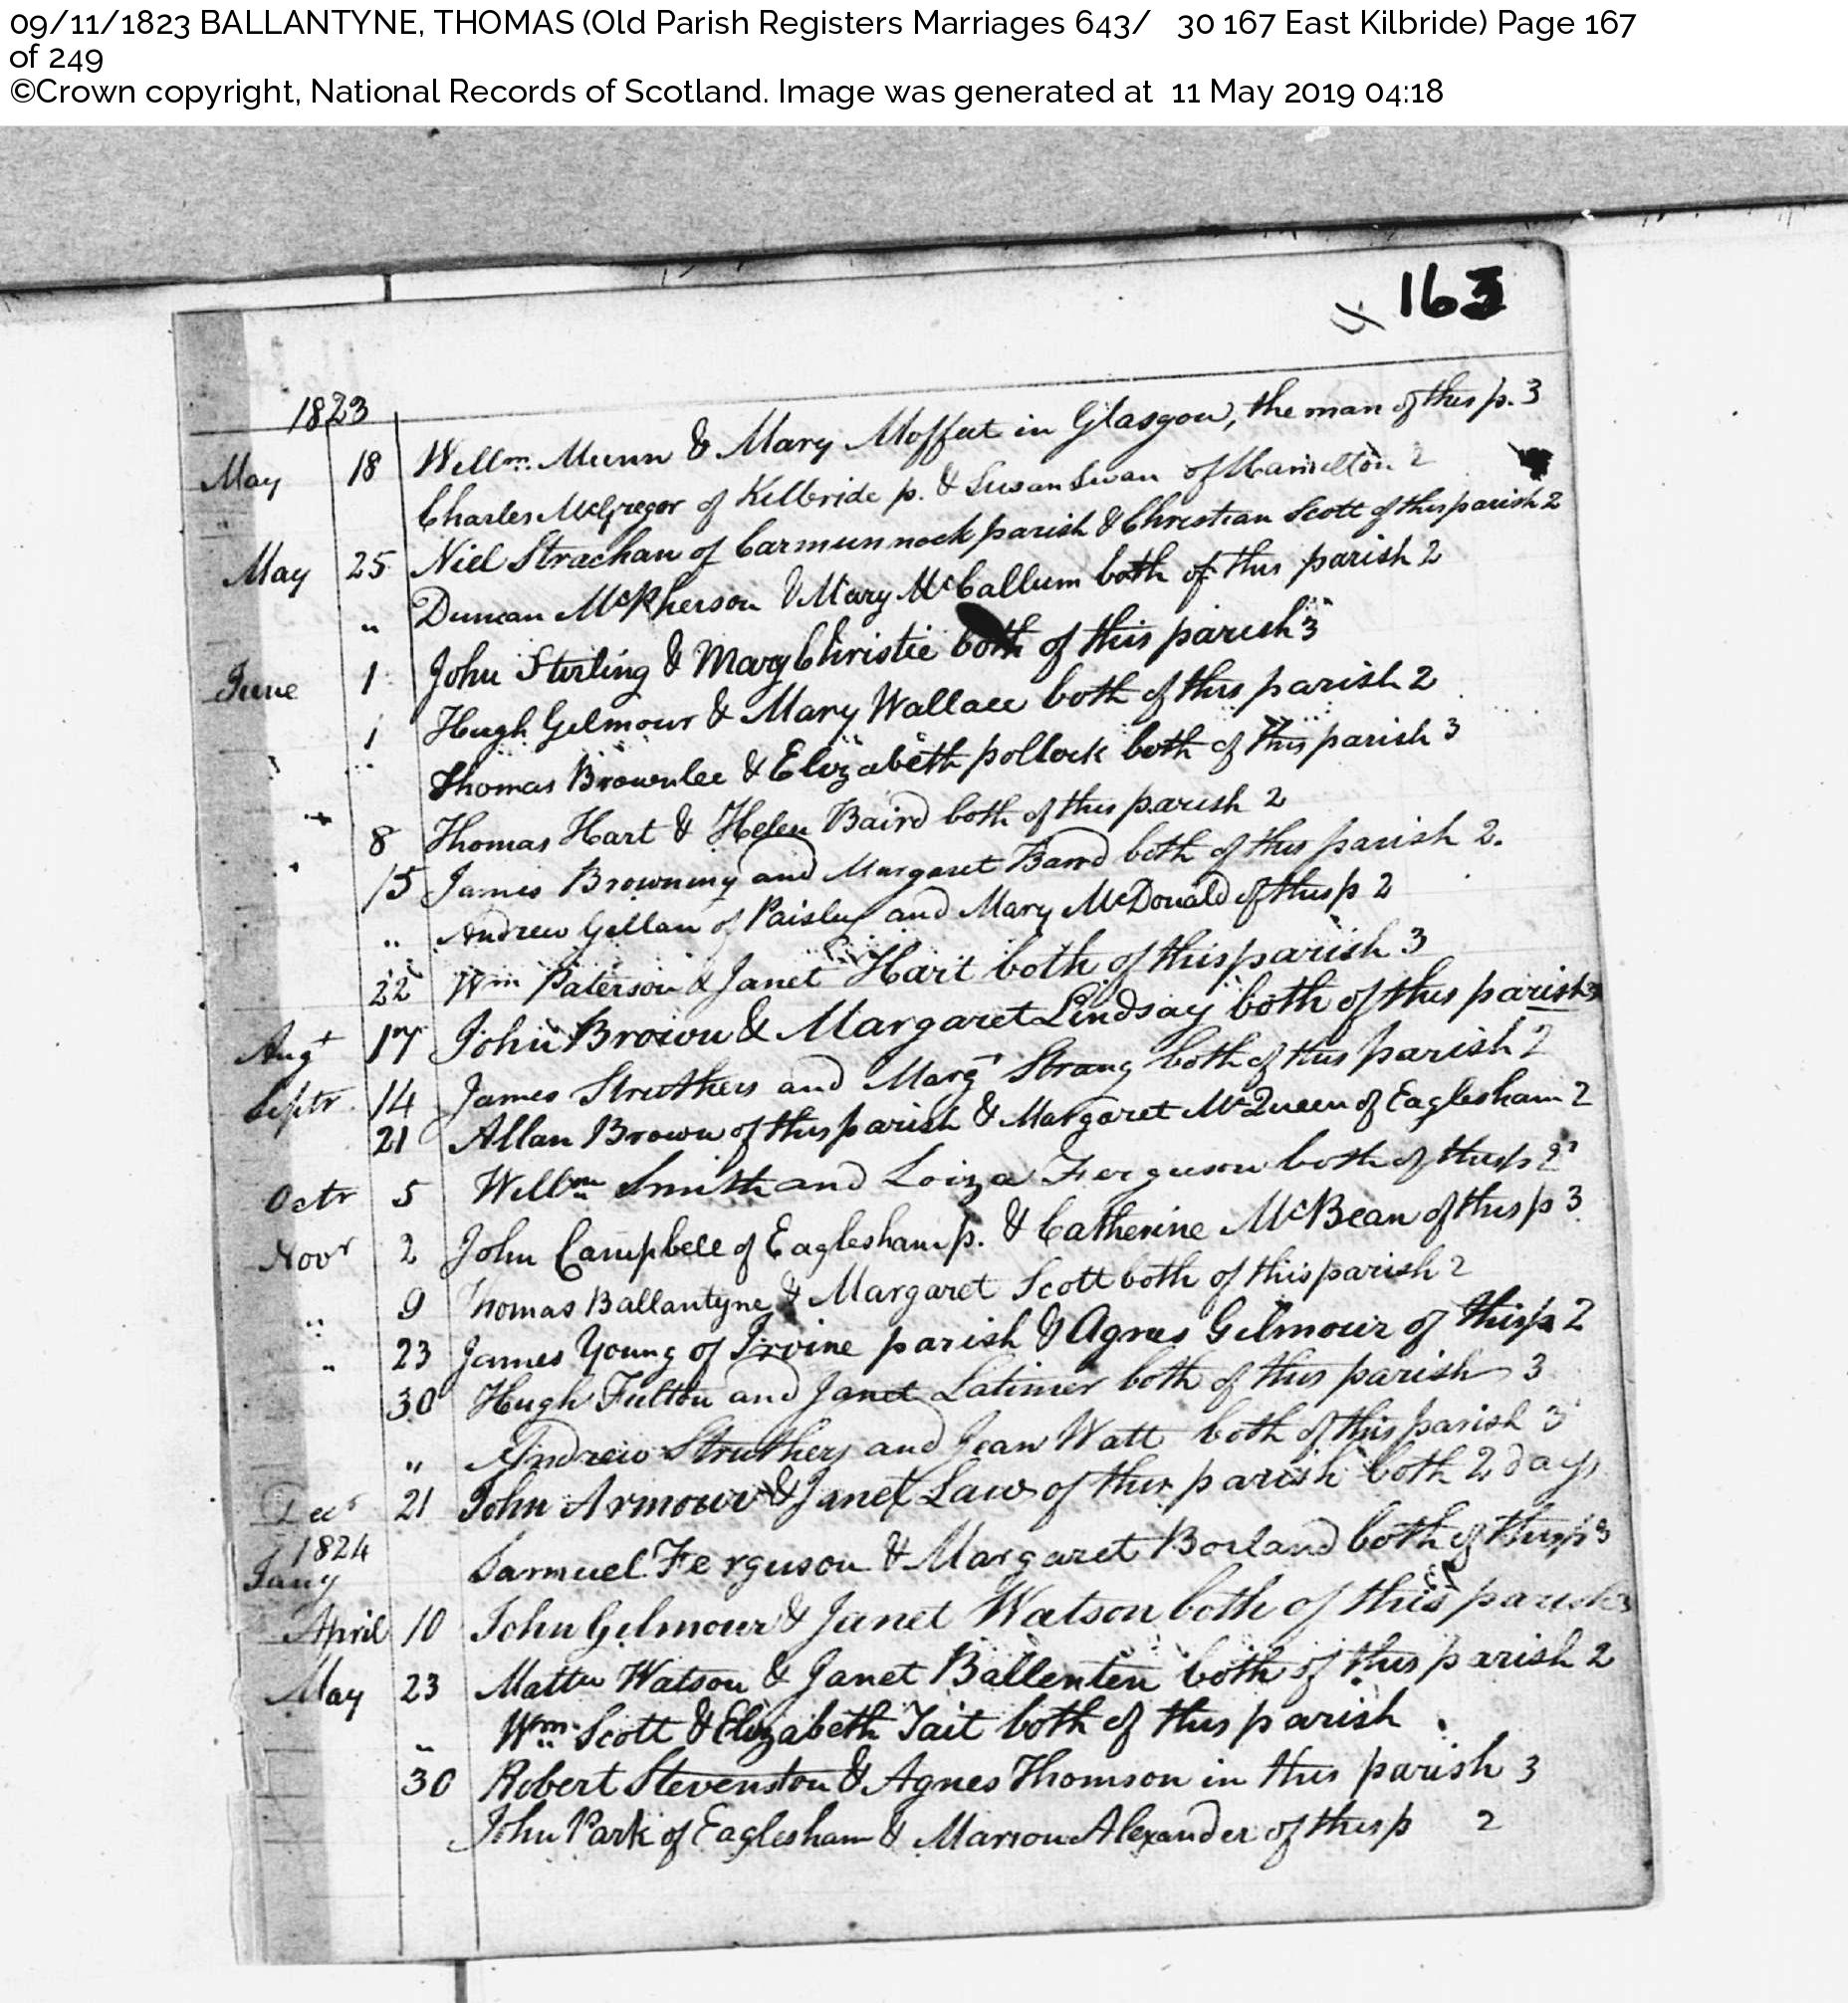 09/11/1823 BALLANTYNE, THOMAS (Old Parish Registers Marriages 643/ 30 167 East Kilbride) Page 167
of 249
©Crown copyright, National Records of Scotland. Image was generated at 11 May 2019 04:18
163
1823
May 18 Willm Munn & Mary Moffat in Glasgow, the man of this p. 3
Charles McGregor of Kilbride p. & Susan Swan of Hamilton 2
May 25 Niel Strachan of Carmunnock parish & Christian Scott of this parish 2
" Duncan McPherson & Mary McCallum both of this parish 2
June 1 John Stirling & Mary Christie both of this parish 3
1 Hugh Gilmour & Mary Wallace both of this parish 2
Thomas Brownlee & Elizabeth pollock both of this parish 3
8 Thomas Hart & Helen Baird both of this parish 2
15 James Browning and Margaret Baird both of this parish 2.
" Andrew Gillan of Paisley and Mary McDonald of this p 2
22 Wm Paterson & Janet Hart both of this parish 3
Augt 17 John Brown & Margaret Lindsay both of this parish 3
Septr 14 James Struthers and Margt Strang both of this parish 2
21 Allan Brown of this parish & Margaret McQueen of Eaglesham 2
Octr 5 Willm Smith and Loiza Ferguson both of this p 2
Novr 2 John Campbell of Eaglesham p. & Catherine McBean of this p 3
" 9 Thomas Ballantyne & Margaret Scott both of this parish 2
" 23 James Young of Irvine parish & Agnes Gilmour of this p 2
30 Hugh Fulton and Janet Latimer both of this parish 3
" Andrew Struthers and Jean Watt both of this parish 3
Decr 21 John Armour & Janet Law of this parish both 2 days
1824
Jany Samuel Ferguson & Margaret Borland both of this p 3
April 10 John Gilmour & Janet Watson both of this parish 3
May 23 Mattw Watson & Janet Ballenten both of this parish 2
" Wm Scott & Elizabeth Tait both of this parish
30 Robert Stevenston & Agnes Thomson in this parish 3
John Park of Eaglesham & Marion Alexander of this p 2